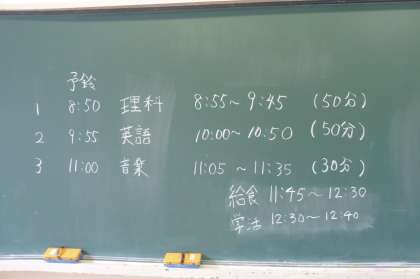 予鈴
1 8:50 理科 8:55～9:45 (50分)
2 9:55 英語 10:00～10:50 (50分)
3 11:00 音楽 11:05～11:35 (30分)
給食 11:45～12:30
学活 12:30～12:40